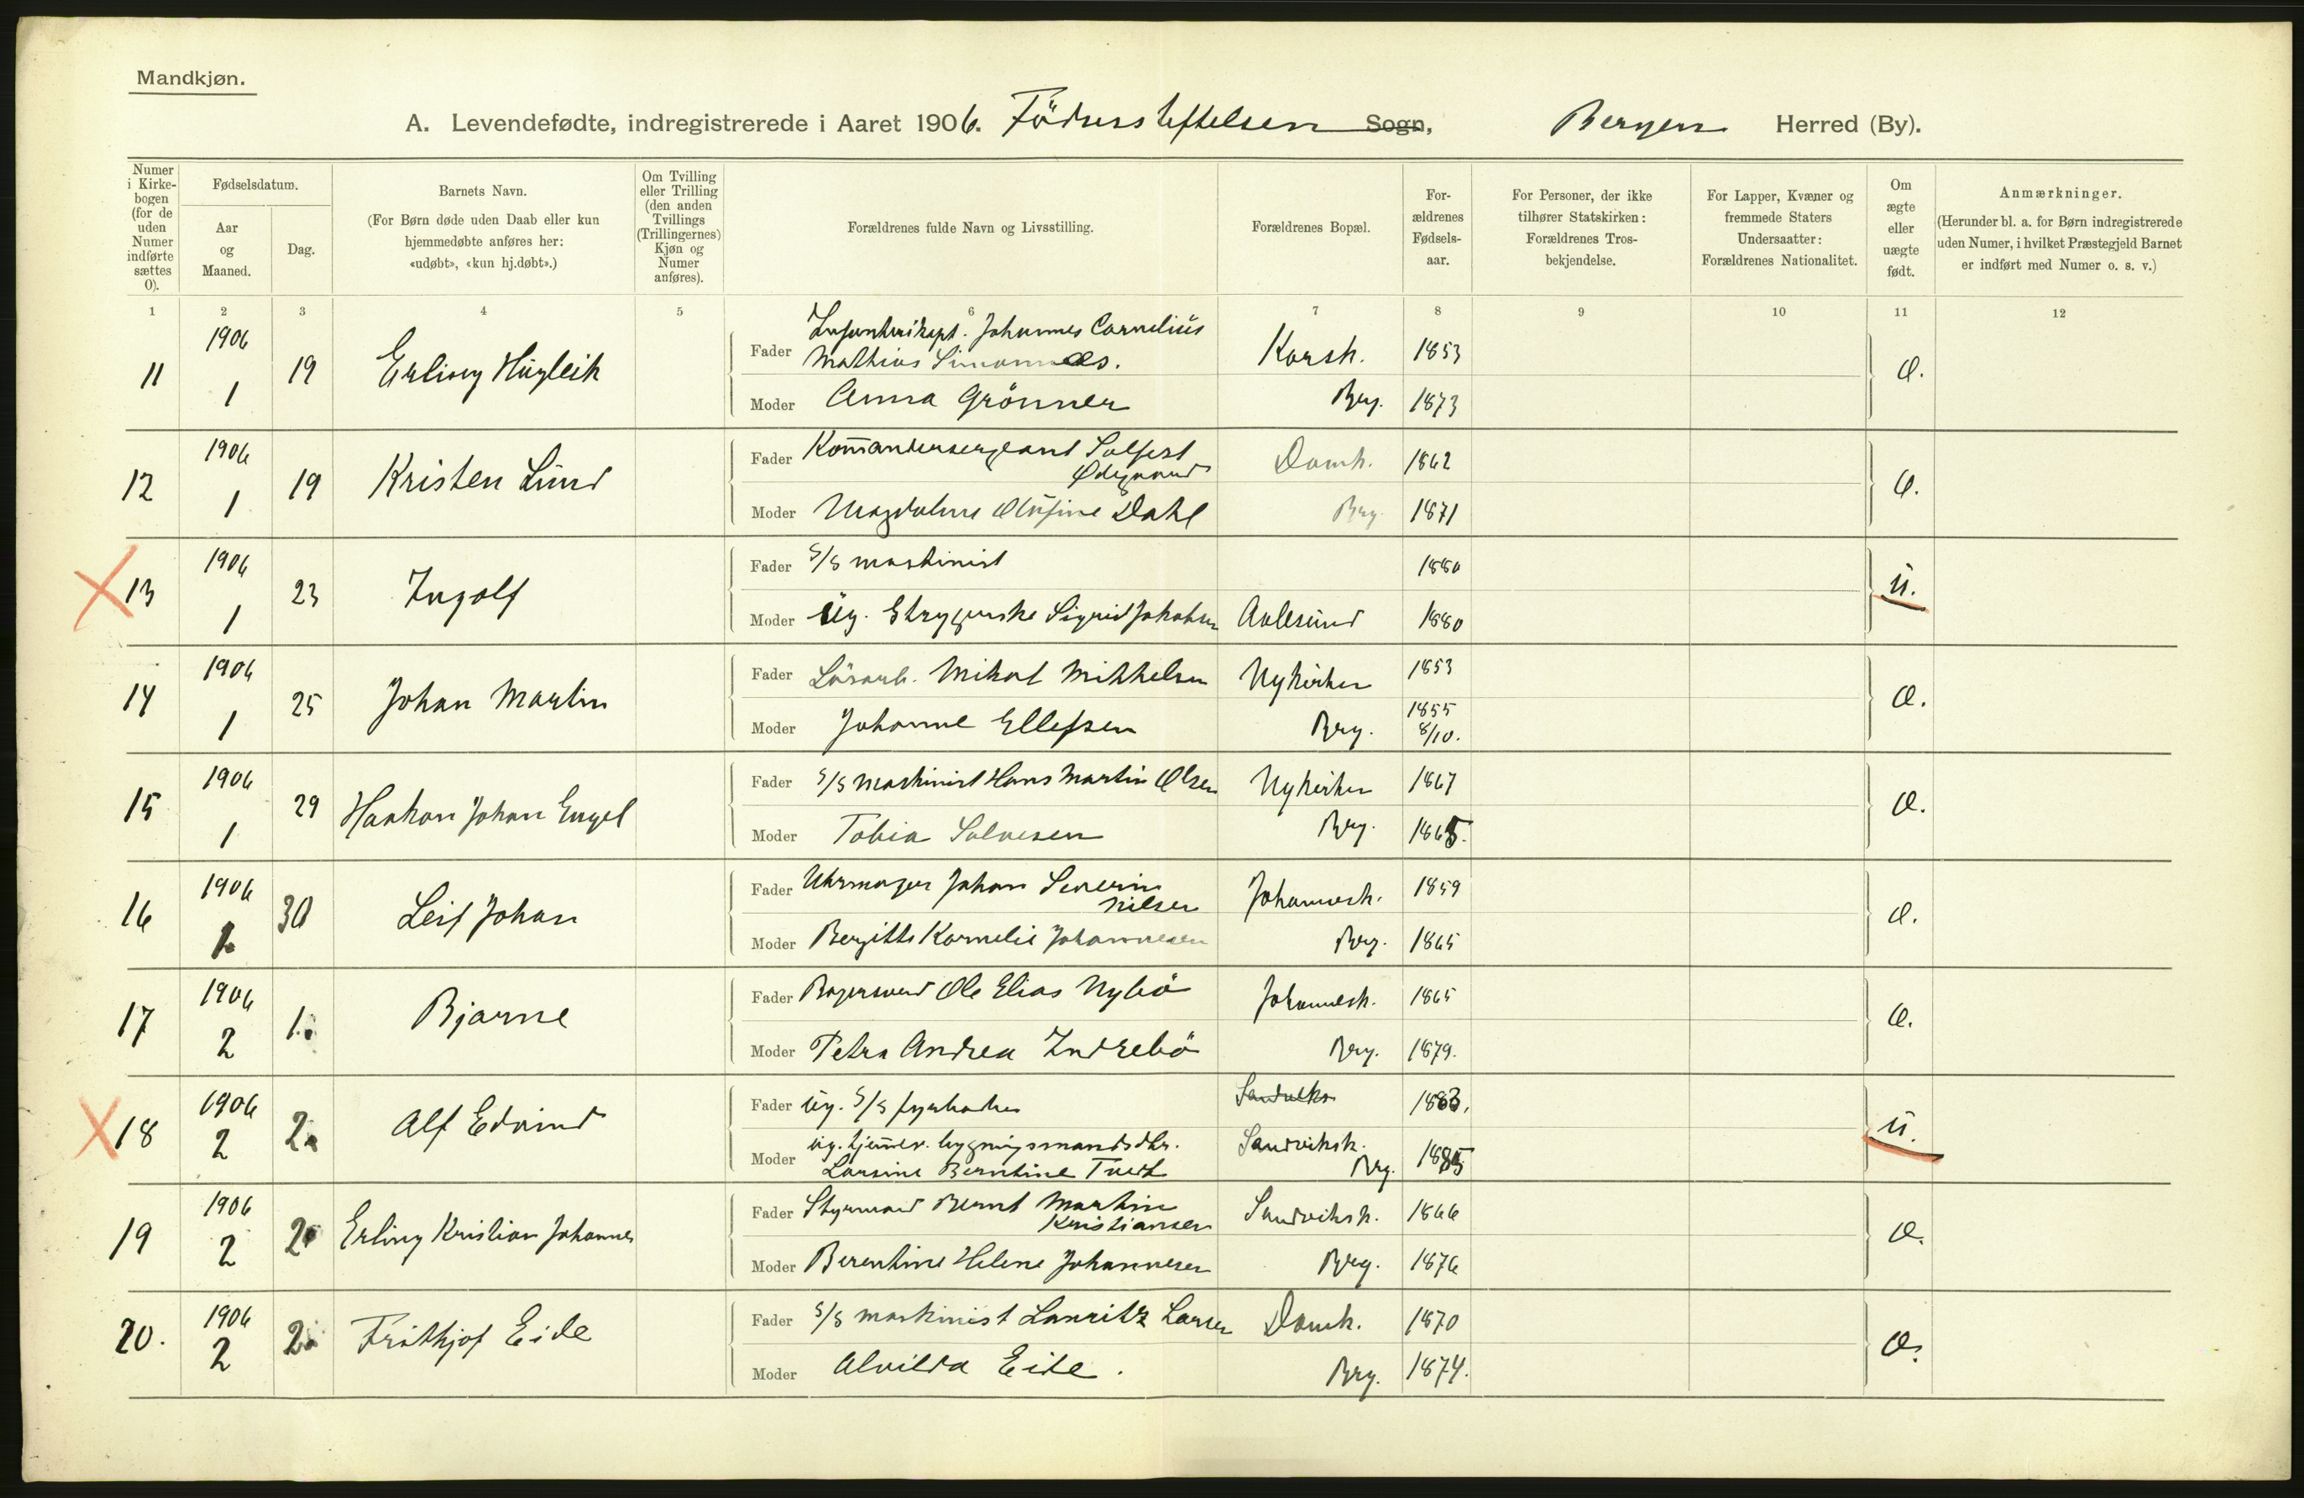 Mandkjøn.
A. Levendefødte, indregistrerede i Aaret 1906. Födselsstiftelsen Sogn, Bergen Herred (By).
Numer i Kirke-bogen (for de uden Numer indførte sættes 0).
Fødselsdatum.
Aar og Maaned.
Dag.
Barnets Navn.
(For Børn døde uden Daab eller kun
hjemmedøbte anføres her:
«udøbt», «kun hj.døbt».)
Om Tvilling
eller Trilling
(den anden
Tvillings
(Trillingernes)
Kjøn og
Numer
anføres).
Forældrenes fulde Navn og Livsstilling.
Forældrenes Bopæl.
For-
ældrenes
Fødsels-
aar.
For Personer, der ikke
tilhører Statskirken:
Forældrenes Tros-
bekjendelse.
For Lapper, Kvæner og
fremmede Staters
Undersaatter:
Forældrenes Nationalitet.
Om
ægte
eller
uægte
født.
Anmærkninger.
(Herunder bl. a. for Børn indregistrerede
uden Numer, i hvilket Præstegjeld Barnet
er indført med Numer o. s. v.)
1 2 3 4 5 6 7 8 9 10 11 12
11 1906 1 19 Erling Hugleik
Fader Infanterikapt. Johannes Cornelius
Mathias Simonnæs. Korsk. 1853 Æ.
Moder Anna Grönner Brg. 1873
12 1906 1 19 Kristen Lund
Fader Kommandersergeant Solfest
Ødegaard Domk. 1862 Æ.
Moder Magdalene Olufine Dahl Brg. 1871
13 1906 1 23 Ingolf
Fader S/S maskinist 1880 u.
Moder Ug. Strygerske Sigrid Jakobsen Aalesund 1880
14 1906 1 25 Johan Martin
Fader Lösarb. Mikal Mikkelsen Nykirken 1853 Æ.
Moder Johanne Ellefsen Brg. 1855 8/10.
15 1906 1 29 Haakon Johan Engel
Fader S/S maskinist Hans Martin Olsen Nykirken 1867 Æ.
Moder Tobia Salvesen Brg. 1865.
16 1906 1. 30 Leif Johan
Fader Uhrmager Johan Severin
Nilsen Johannesk. 1859 Æ.
Moder Bergitte Kornelie Johannesen Brg. 1865
17 1906 2 1. Bjarne
Fader Bagersvend Ole Elias Nybö Johannesk. 1865 Æ.
Moder Petra Andrea Indrebö Brg. 1879.
18 1906 2 2. Alf Edvind
Fader ug. S/S fyrböder 1883. u.
Moder ug. tjener. bygningsmandsdtr.
Larsine Berntine Tveit Sandviksk. Brg. 1885
19 1906 2 2. Erling Kristian Johannes
Fader Styrmand Bernt Martin
Kristiansen Sandviksk. 1866 Æ.
Moder Berentine Helene Johannesen Brg. 1876
20. 1906 2 2. Frithjof Eide
Fader S/S maskinist Lauritz Larsen Domk. 1870 Æ.
Moder Alvilda Eide. Brg. 1874.